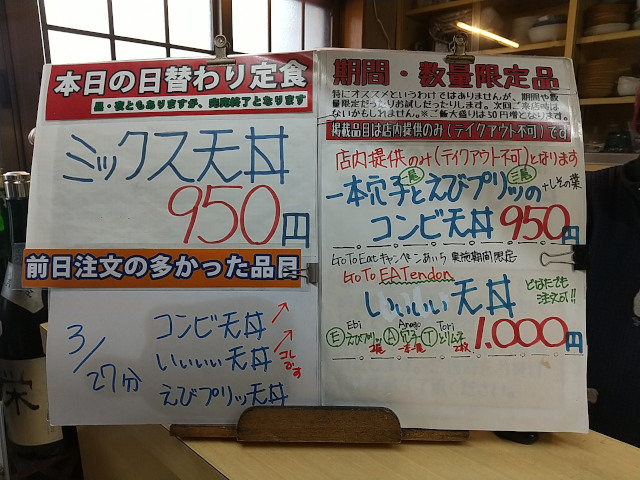 本日の日替わり定食
昼・夜ともありますが、完売終了となります
ミックス天丼
950円
前日注文の多かった品目
3/27分
コンビ天丼
いいぃぃ天丼
コレです
えびプリッ天丼
期間・数量限定品
特にオススメというわけではありませんが、期間や数
量限定だったりお試しだったりします。次回ご来店時は
ないかもしれません。※ご飯大盛りは50円増となります。
掲載品目は店内提供のみ(テイクアウト不可)です
店内提供のみ(テイクアウト不可)となります
一尾 三尾
一本穴子とえびプリッの +しその葉
コンビ天丼 950円
GoToEatキャンペーンあいち 実施期間限定
GoTo EATendon
いいぃぃ天丼
どなたでも
注文OK!!
Ebi Anago Tori
Eえびプリッ A穴子 Tとりムネ
2尾 一本 2枚
1,000円
栄